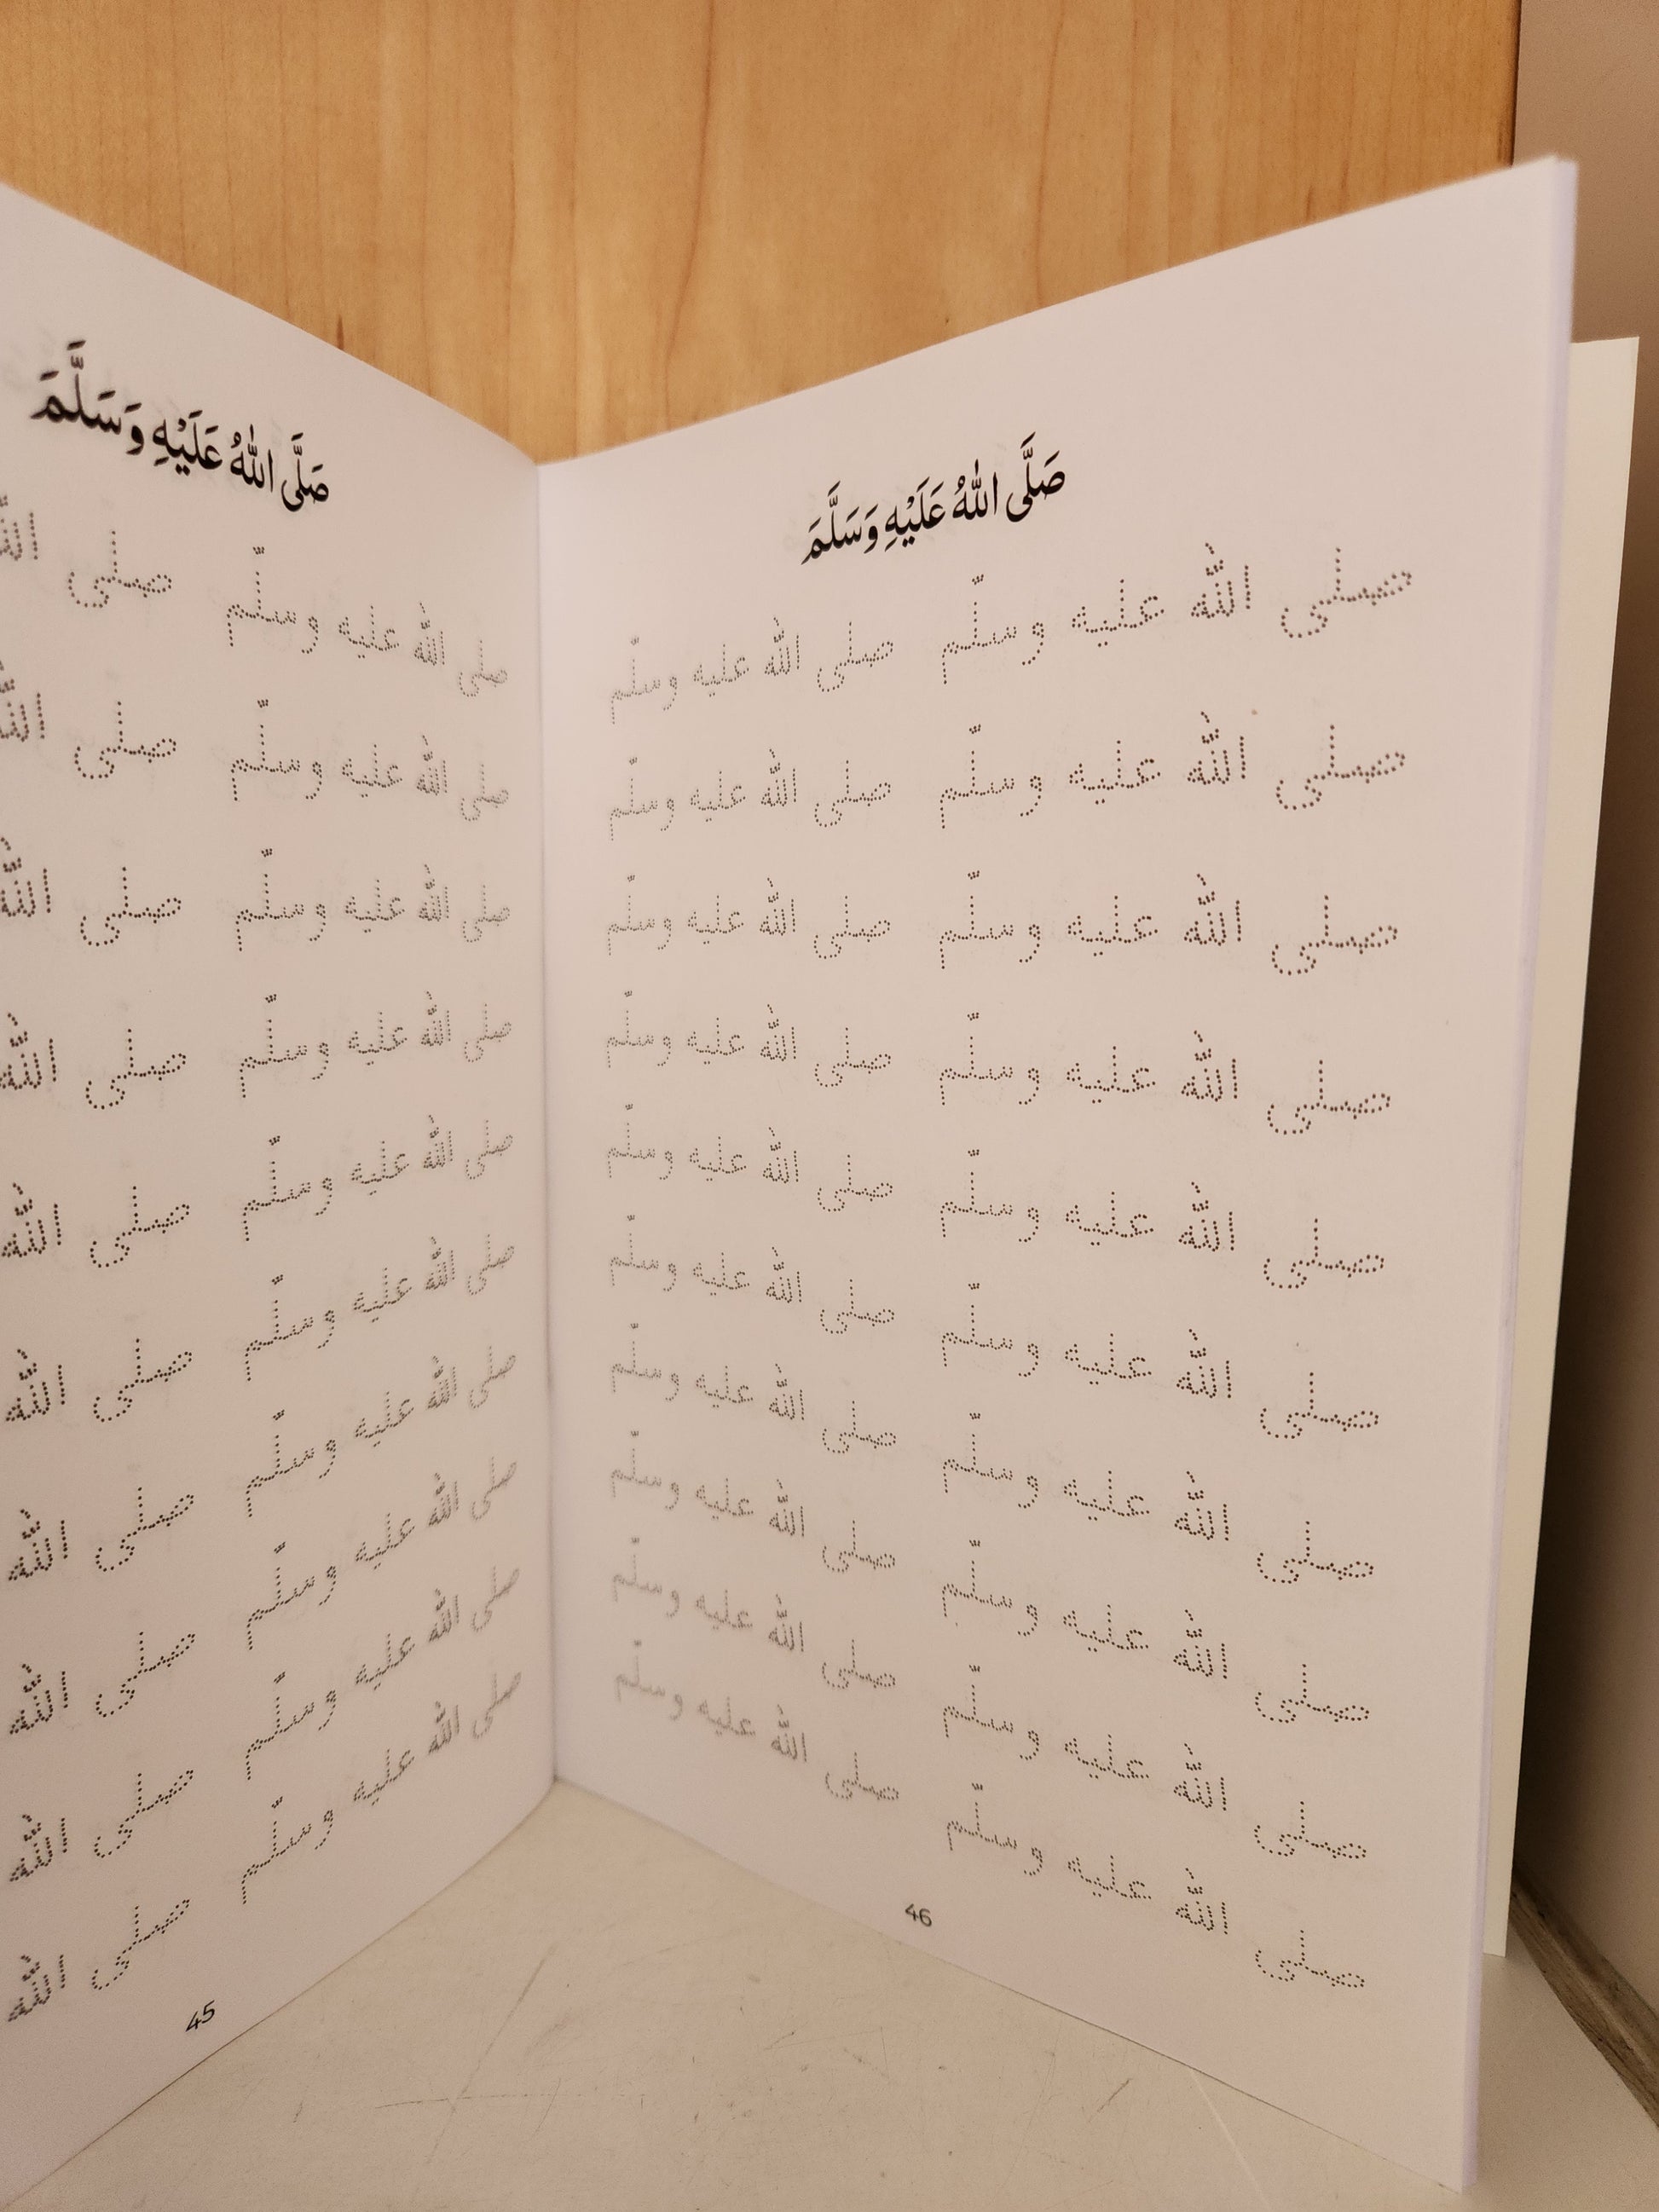 صَلَّى اللّٰهُ عَلَيْهِ وَسَلَّمَ
صلى اللّٰه عليه وسلّم صلى اللّٰه
صلى اللّٰه عليه وسلّم صلى اللّٰه
صلى اللّٰه عليه وسلّم صلى اللّٰه
صلى اللّٰه عليه وسلّم صلى اللّٰه
صلى اللّٰه عليه وسلّم صلى اللّٰه
صلى اللّٰه عليه وسلّم صلى اللّٰه
صلى اللّٰه عليه وسلّم صلى اللّٰه
صلى اللّٰه عليه وسلّم صلى اللّٰه
صلى اللّٰه عليه وسلّم صلى اللّٰه
صلى اللّٰه عليه وسلّم صلى اللّٰه
45
صَلَّى اللّٰهُ عَلَيْهِ وَسَلَّمَ
صلى اللّٰه عليه وسلّم صلى اللّٰه عليه وسلّم
صلى اللّٰه عليه وسلّم صلى اللّٰه عليه وسلّم
صلى اللّٰه عليه وسلّم صلى اللّٰه عليه وسلّم
صلى اللّٰه عليه وسلّم صلى اللّٰه عليه وسلّم
صلى اللّٰه عليه وسلّم صلى اللّٰه عليه وسلّم
صلى اللّٰه عليه وسلّم صلى اللّٰه عليه وسلّم
صلى اللّٰه عليه وسلّم صلى اللّٰه عليه وسلّم
صلى اللّٰه عليه وسلّم صلى اللّٰه عليه وسلّم
صلى اللّٰه عليه وسلّم صلى اللّٰه عليه وسلّم
صلى اللّٰه عليه وسلّم صلى اللّٰه عليه وسلّم
46